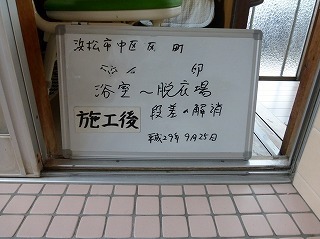 浜松市中区 町
邸
浴室～脱衣場
施工後 段差の解消
平成29年9月25日